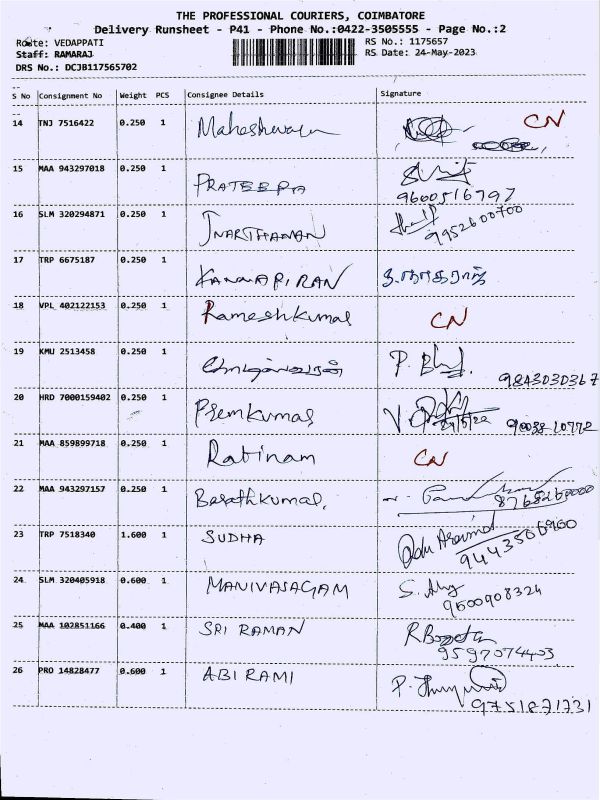 THE PROFESSIONAL COURIERS, COIMBATORE
Delivery Runsheet - P41 - Phone No.:0422-3505555 - Page No.:2
Route: VEDAPPATI RS No.: 1175657
Staff: RAMARAJ RS Date: 24-May-2023
DRS No.: DCJB117565702
S No Consignment No Weight PCS Consignee Details Signature
14 TNJ 7516422 0.250 1 Maheshwaran CN
15 MAA 943297018 0.250 1 PRATEEPA
9600516797
16 SLM 320294871 0.250 1 JNARTHANAN 9952600700
17 TRP 6675187 0.250 1 KANNAPIRAN த.நாகராஜ்
18 VPL 402122153 0.250 1 Rameshkumar CN
19 KMU 2513458 0.250 1
9843030367
20 HRD 7000159402 0.250 1 Premkumar
21 MAA 859899718 0.250 1 Ratinam CN
22 MAA 943297157 0.250 1 Barathkumar,
8765260000
23 TRP 7518340 1.600 1 SUDHA
9443506960
24 SLM 320405918 0.600 1 MANIVASAGAM
9600908324
25 MAA 102851166 0.400 1 SRI RAMAN
9597074403
26 PRO 14828477 0.600 1 ABIRAMI
9751871731